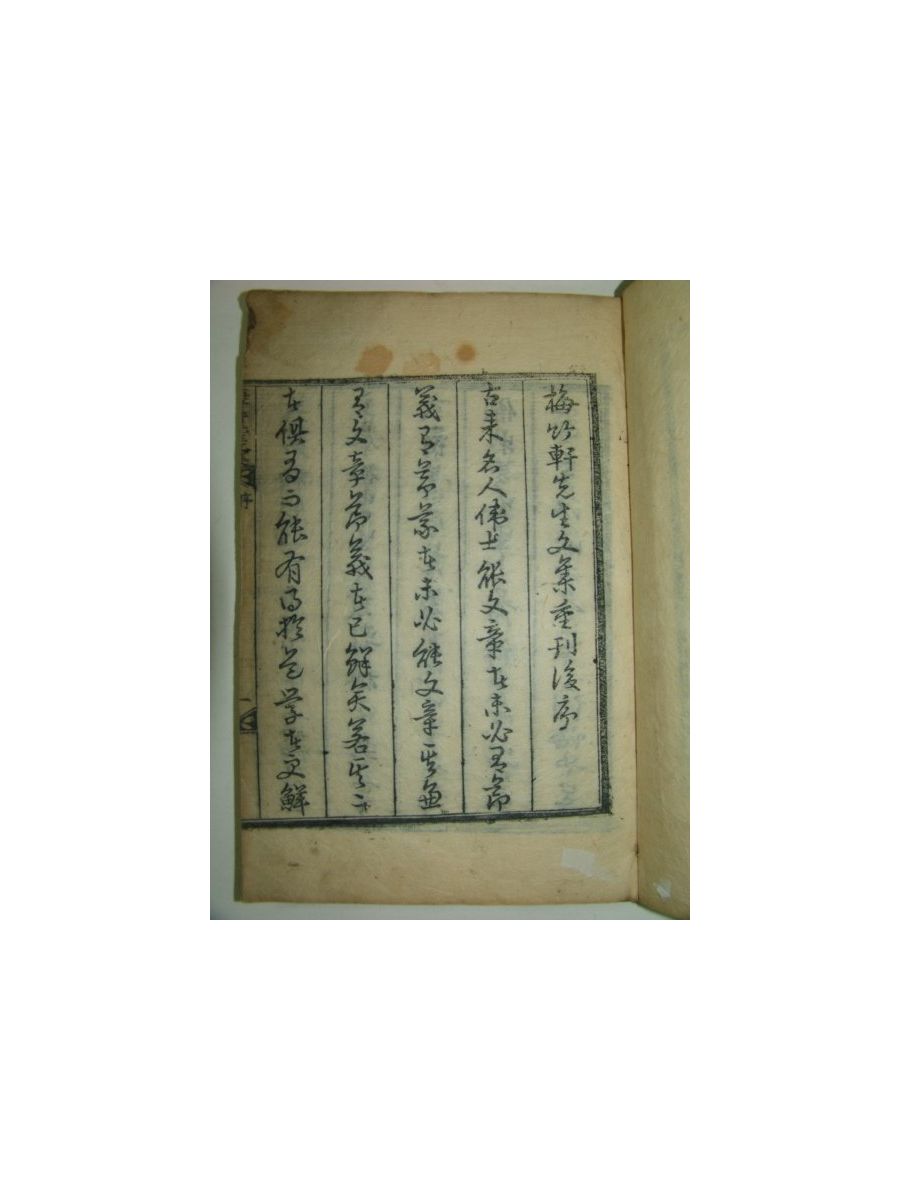 梅竹軒先生文集重刊後序
古来名人偉士能文章者未必有節
義有節義者未必能文章其兼
有文章節義者已鮮矣若其二
者俱有而能有得於道學者更鮮
序
一